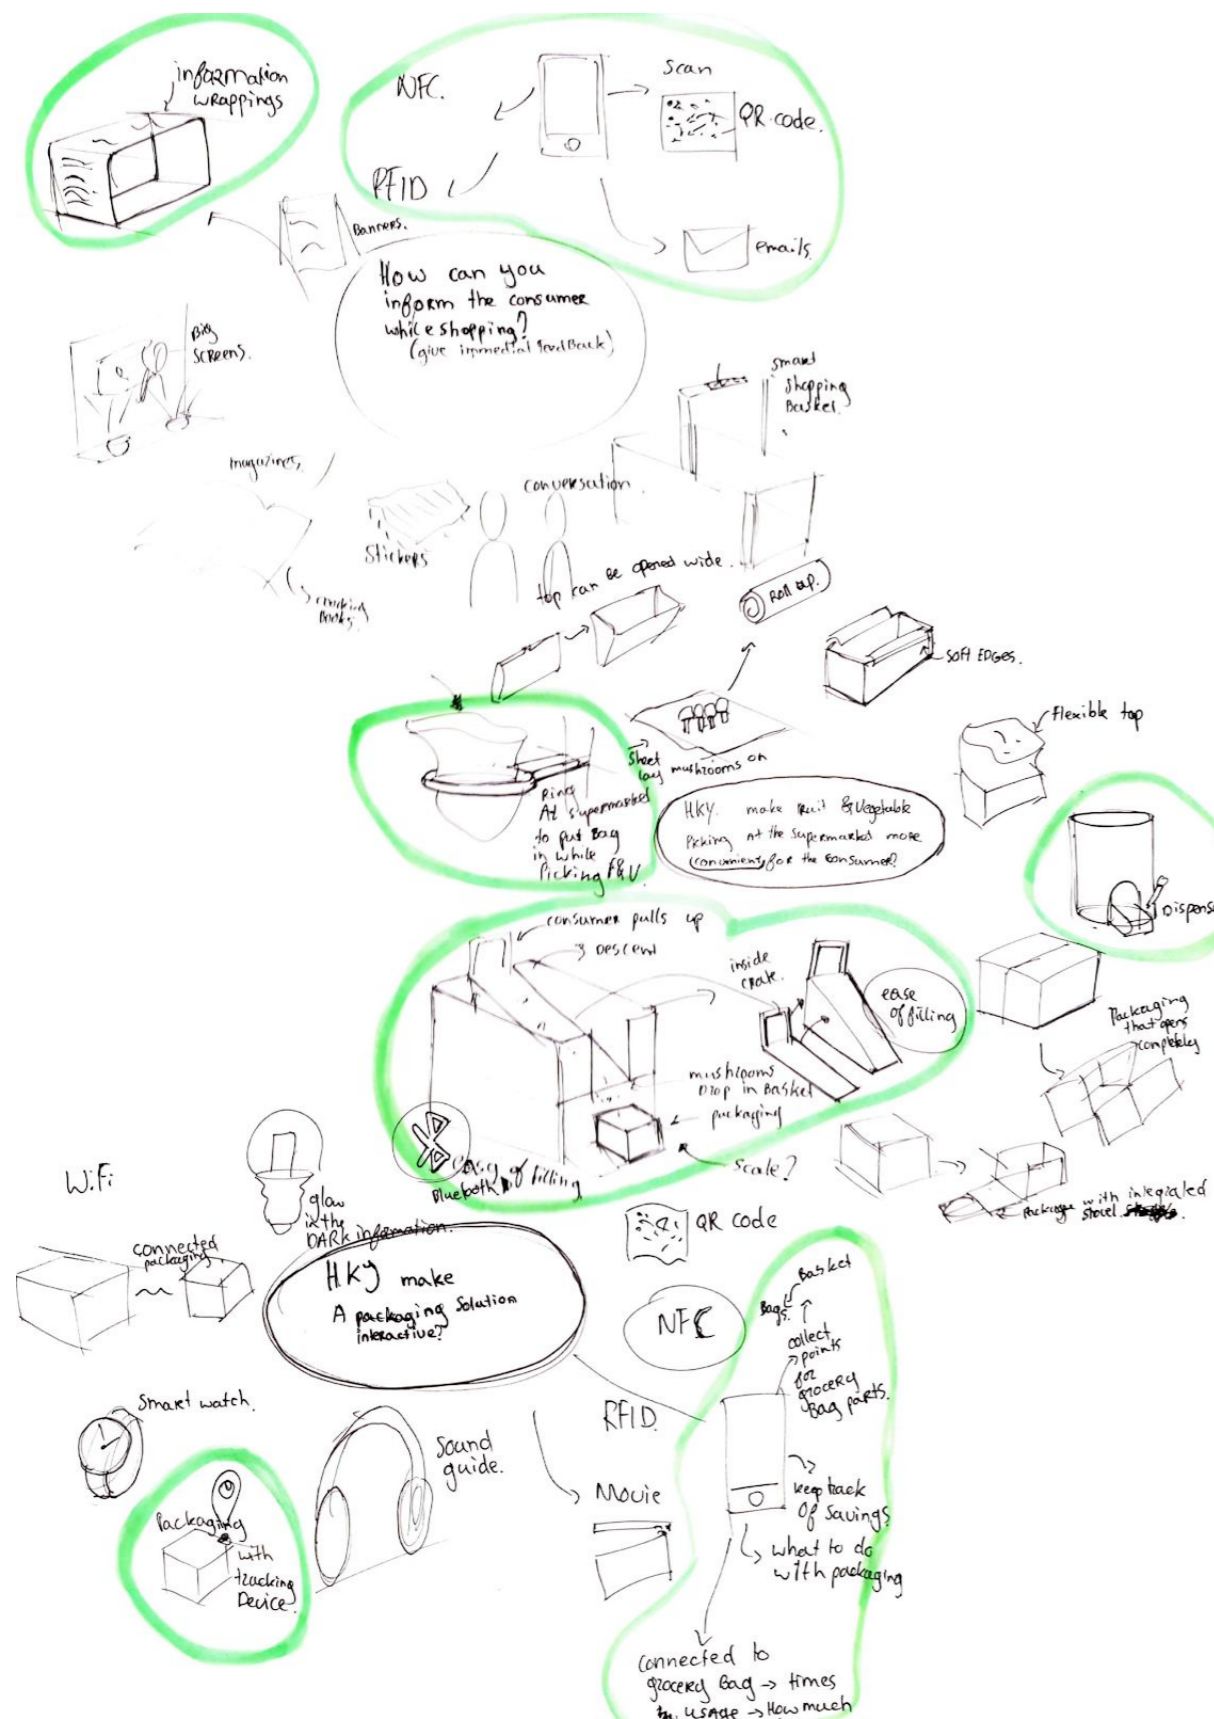 information
wrappings
NFC.
scan
QR-code.
RFID
emails.
Banners.
How can you
inform the consumer
while shopping?
(give immedial feedBack)
Big
screens.
smart
shopping
Basket.
magazines
conversation.
Stickers
cooking
Books.
top can be opened wide.
Roll up.
SOFT EDGES.
flexible top
Sheet
lay mushrooms on
Ring
At supermarked
to put Bag
in while
Picking F&V.
HKY. make fruit & vegetable
Picking At the supermarked more
convenient for the consumer?
Dispense
consumer pulls up
DESCENT
inside
crate.
ease
of filling
mushrooms
Drop in Basket
packaging
scale?
easy of filling
Bluetooth
Packaging
that opens
completely
Package with integrated
shovel.
WiFi
glow
in the
DARK information.
connected
packaging
HKY make
A packaging solution
interactive?
QR code
NFC
RFID.
Basket
Bags.
collect
points
for
grocery
Bag parts.
Smart watch.
Sound
guide.
Movie
keep track
of savings
what to do
with packaging
Packaging
with
tracking
Device.
connected to
grocery Bag → times
usage → How much